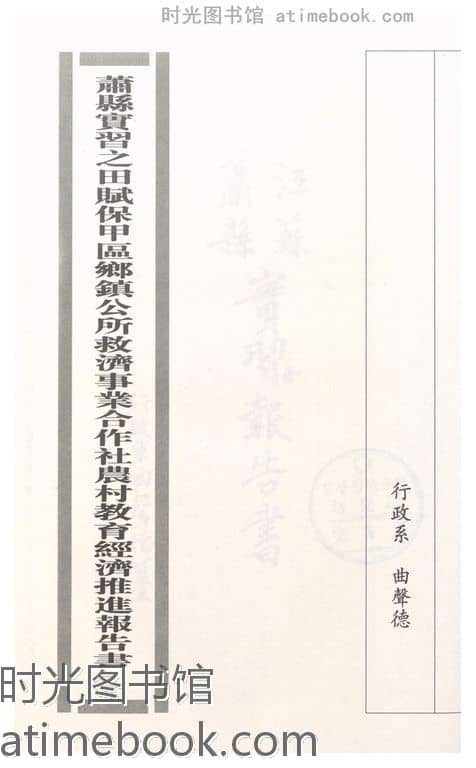 时光图书馆 atimebook.com
行政系 曲聲德
江蘇
蕭縣
實習報告書
蕭縣實習之田賦保甲區鄉鎮公所救濟事業合作社農村教育經濟推進報告書
时光图书馆
atimebook.com